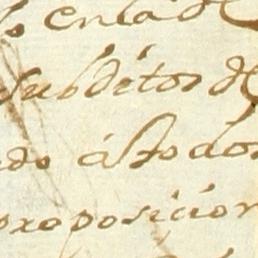 en la de
subditos de
do á todos
proposicion